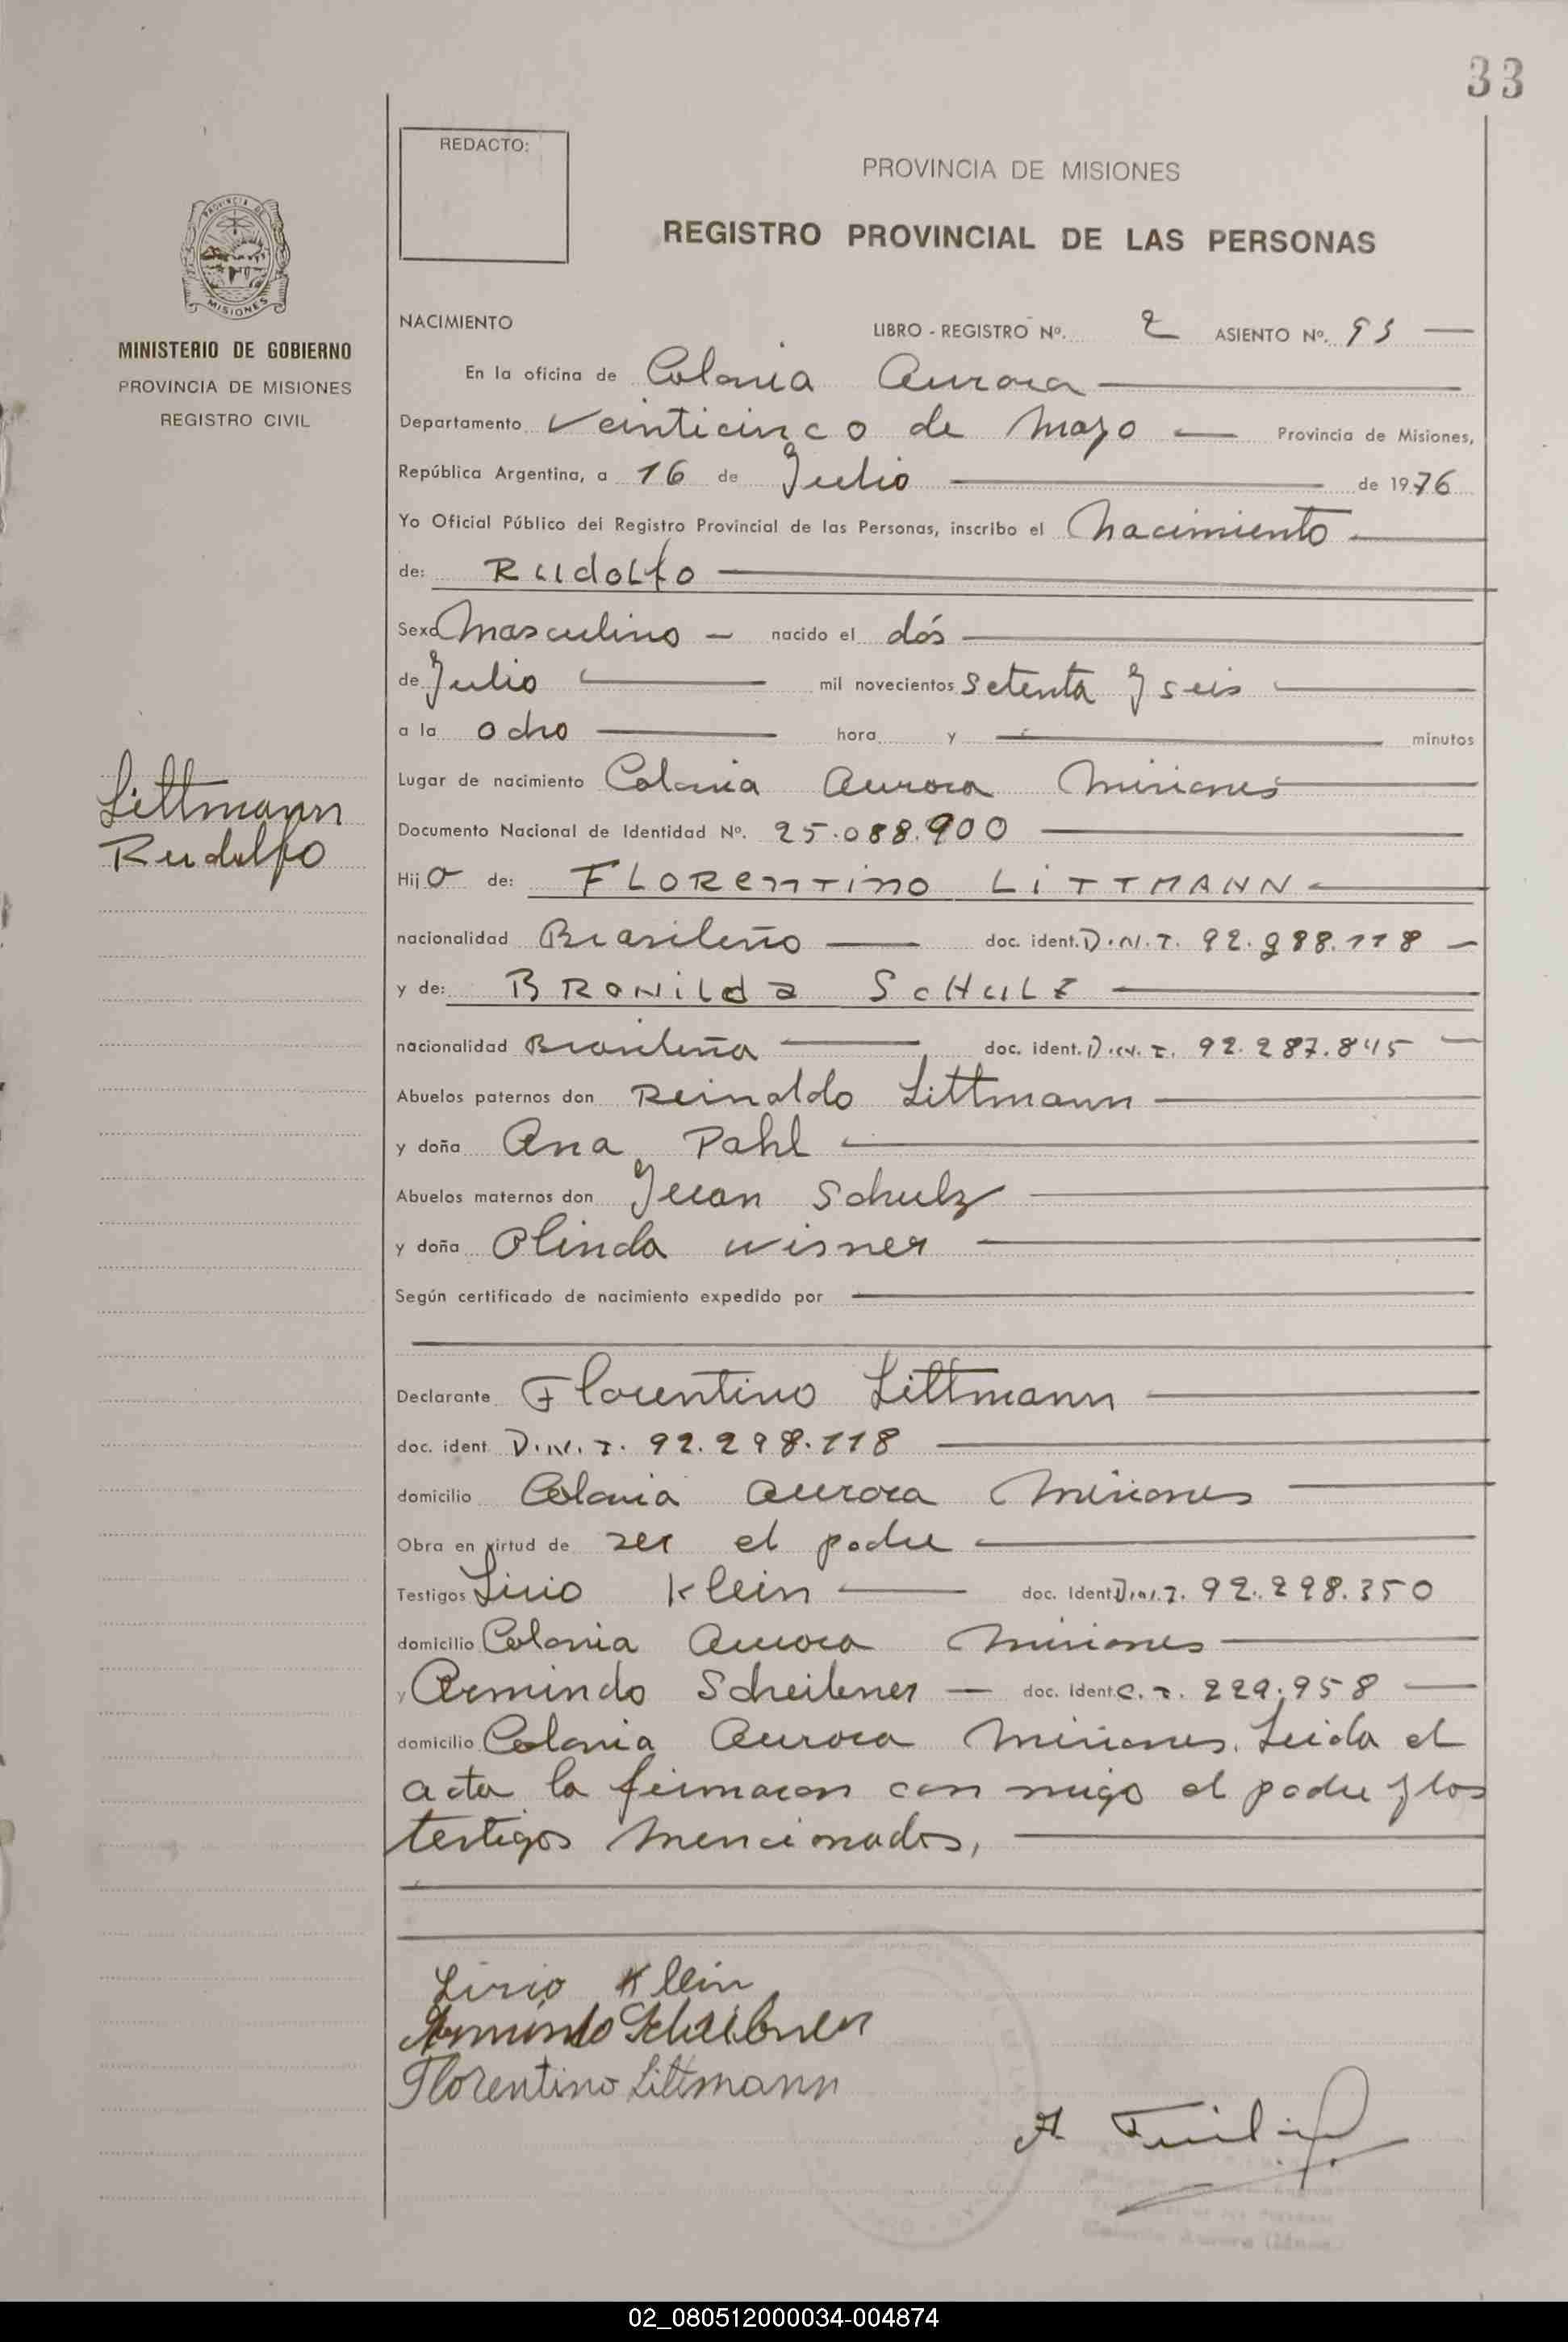 33
REDACTO:
PROVINCIA DE MISIONES
REGISTRO PROVINCIAL DE LAS PERSONAS
PROVINCIA DE
MISIONES
MINISTERIO DE GOBIERNO
PROVINCIA DE MISIONES
REGISTRO CIVIL
Littmann
Rudolfo
NACIMIENTO
LIBRO - REGISTRO Nº. 2 ASIENTO Nº. 93
En la oficina de Colonia Aurora
Departamento Veinticinco de Mayo Provincia de Misiones,
República Argentina, a 16 de Julio de 1976
Yo Oficial Público del Registro Provincial de las Personas, inscribo el Nacimiento
de: Rudolfo
Sexo Masculino nacido el dós
de Julio mil novecientos setenta y seis
a la ocho hora y minutos
Lugar de nacimiento Colonia Aurora Misiones
Documento Nacional de Identidad Nº. 25.088.900
Hij o de: FLORentino LiTTMANN
nacionalidad Brasileño doc. ident. D.N.I. 92.298.118
y de: BRONilda ScHULZ
nacionalidad Brasileña doc. ident. D.N.I. 92.287.845
Abuelos paternos don Reinaldo Littmann
y doña Ana Pahl
Abuelos maternos don Juan Schulz
y doña Olinda Wisner
Según certificado de nacimiento expedido por
Declarante Florentino Littmann
doc. ident D.N.I. 92.298.118
domicilio Colonia Aurora Misiones
Obra en virtud de ser el padre
Testigos Lirio Klein doc. ident D.N.I. 92.298.350
domicilio Colonia Aurora Misiones
y Armindo Scheibner doc. ident C.I. 229.958
domicilio Colonia Aurora Misiones. Leida el
acta la firmaron con migo el padre y los
testigos mencionados,
Lirio Klein
Armindo Scheibner
Florentino Littmann
02_080512000034-004874